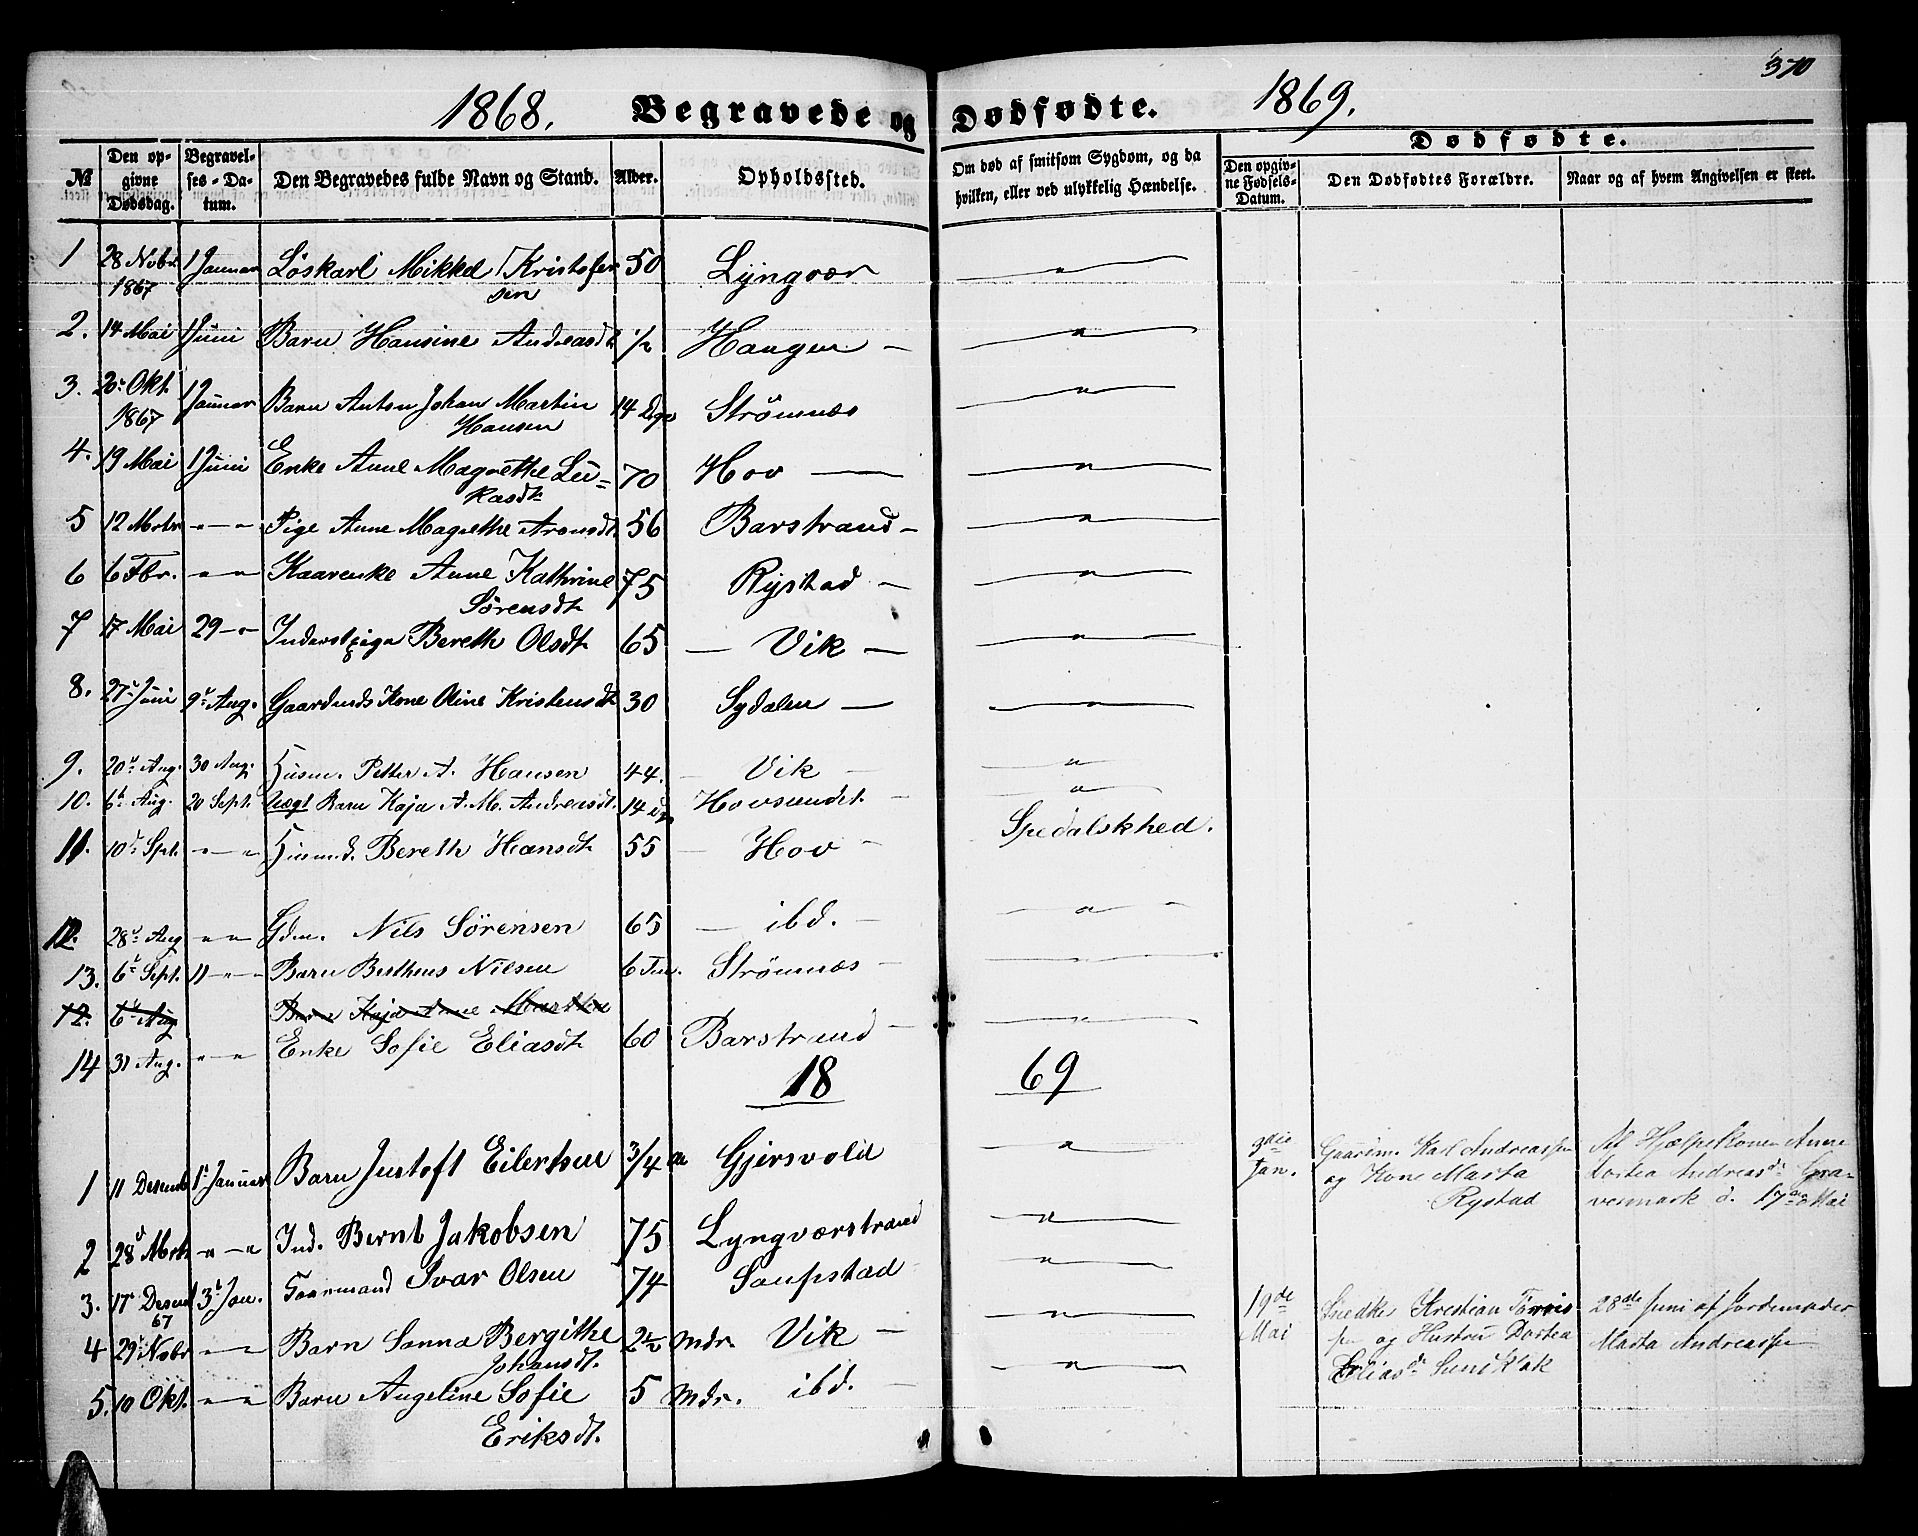 370
1868. Begravede og Dødfødte. 1869.
№ Den opgivne Dødsdag. Begravelses-Datum. Den Begravedes fulde Navn og Stand. Alder. Opholdssted. Om død af smitsom Sygdom, og da hvilken, eller ved ulykkelig Hændelse. Dødfødte. Den opgivne Fødsels-Datum. Den Dødfødtes Forældre. Naar og af hvem Angivelsen er skeet.
1 28 Nobr. 1 Januar Löskarl Mikkel Kristofer 50 Lyngvær — " —
1867 sen
2. 14 Mai 1 Juni Barn Hansine Andreasdt. 1/2 Haugen — — " —
3. 20 Okt. 1 Januar Barn Anton Johan Martin 14 Dge Strömnæs — " —
1867 Hansen
4. 19 Mai 1 Juni Enke Anne Magrethe Lu= 70 Hov — — " —
kasdt
5 12 Mrts " — " Pige Anne Magrethe Aronsdt. 56 Barstrand — — " —
6 6 Fbr. " — " Kaarenke Anne Kathrine 75 Rystad — — " —
Sörensdt
7 17 Mai 29 — " Inderstpige Bereth Olsdt 65 — Vik — — " —
8. 27 Juni 9 Aug. Gaardmds Kone Oline Kristensdt 30 Sydalen — — " —
9. 20 Aug. 30 Aug. Husm. Petter A. Hansen 44. — Vik — — " —
10. 6 Aug. 20 Sept. Uægt Barn Kaja A. M. Andreasdt. 14 Dg Hovsundet — — " —
11. 10 Spt. " — " Husmd. Bereth Hansdt 55 — Hov — Spedalskhed.
12. 28 Aug " — " Gdm. Nils Sörensen 65 — ibd. — — " —
13. 6 Sept. 11 — " Barn Bertheus Nilsen 6 Tim. Strömnæs — — " —
12. 6 Aug Barn Kaja Anne Marthea
14 31 Aug. " — " Enke Sofie Eliasdt 60 Barstrand — — " —
18 69
1 11 Desemb 1 Januar Barn Justoft Eilertsen 3/4 a Gjersvold — " —
9die Jan. Gaarm. Karl Andreassen
og Kone Marta
Rystad
Af Hjælpekonen Anne
Dortea Andreasd. Gra-
venmark d. 17 Mai
2 28 Mrts " — " Ind. Bernt Jakobsen 75 Lyngværstrand — " —
3. 17 Desemb 3 Jan. Gaarmand Ivar Olsen 74 Saupstad — " —
67
4 29 Nobr " — " Barn Sanna Bergithe 2½ Mdr. Vik — — " —
Johansdt.
5. 10 Okt. " — " Barn Angeline Sofie 5 Mdr. ibd. — — " —
Eriksdt.
19de Mai Snedker Kristian
og Hustru Dortea
Eliasd.
28de Juni af Jordemoder
Marta Andreassen